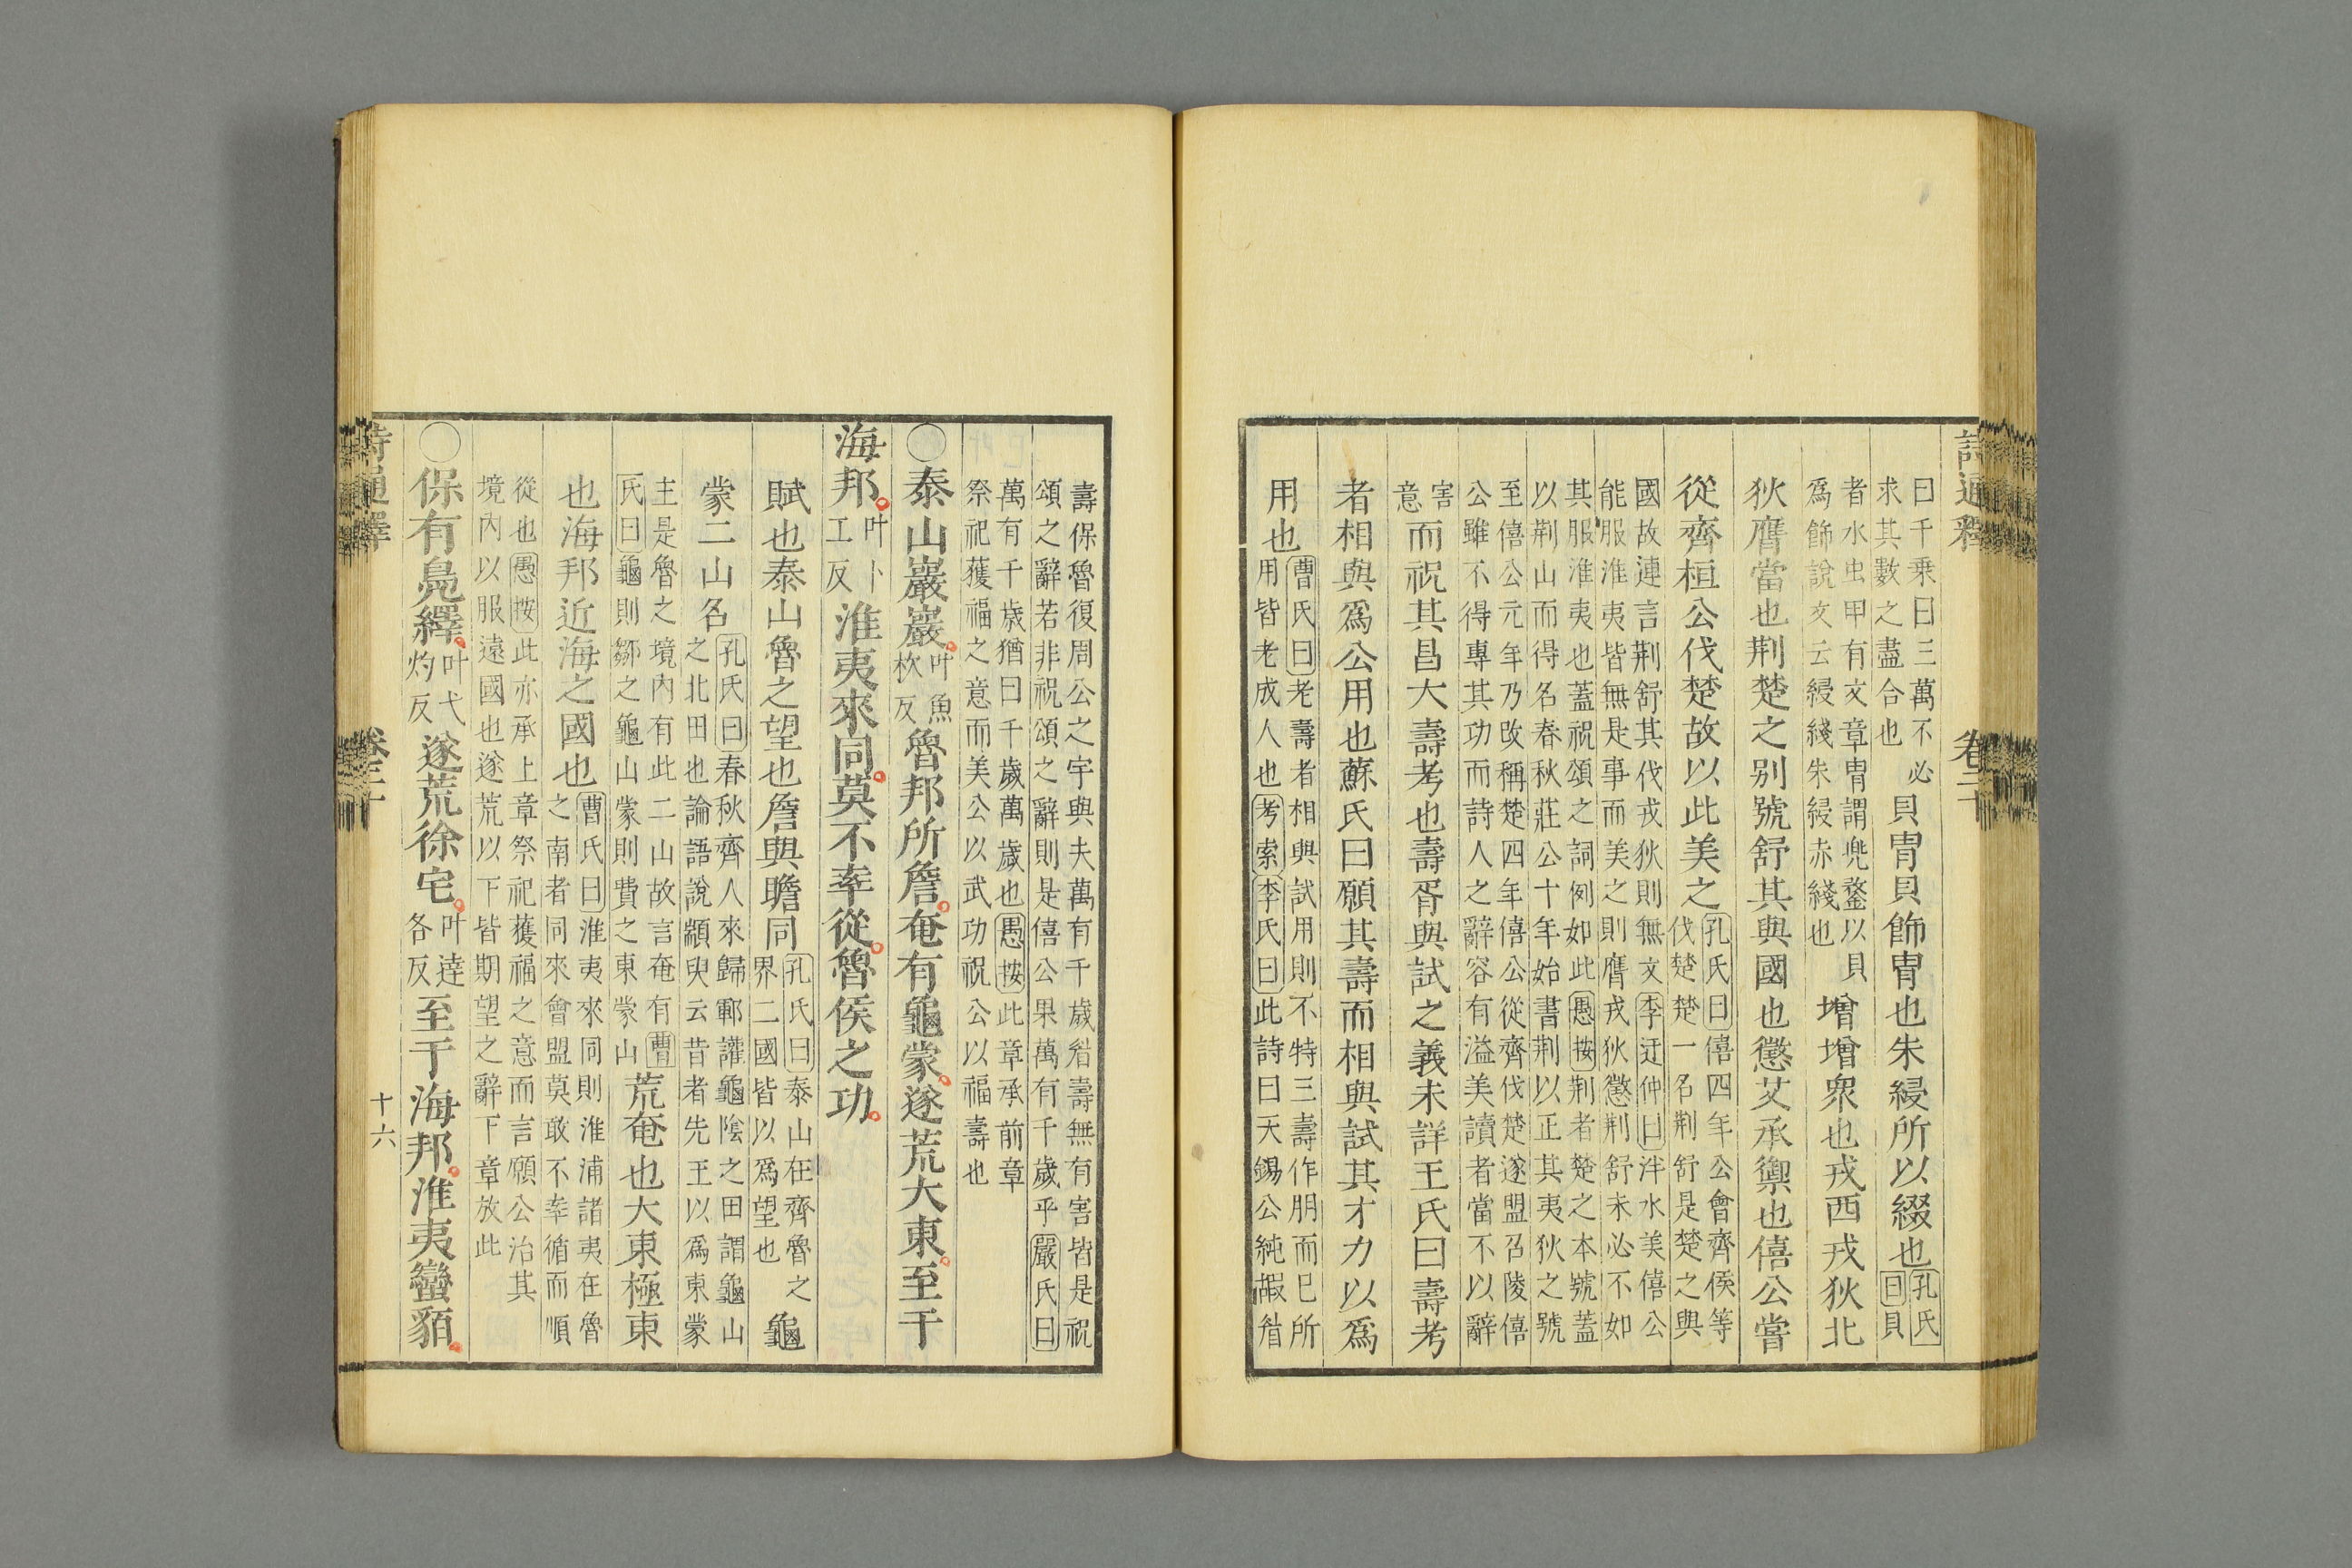 詩通釋　卷二十
曰千乗曰三萬不必
求其數之盡合也
貝冑貝飾冑也朱綅所以綴也
孔氏
曰貝
者水虫甲有文章冑謂兜鍪以貝
爲飾說文云綅綫朱綅赤綫也
增增衆也戎西戎狄北
狄膺當也荆楚之别號舒其與國也懲艾承禦也僖公嘗
從齊桓公伐楚故以此美之
孔氏曰僖四年公會齊侯等
伐楚楚一名荆舒是楚之與
國故連言荆舒其伐戎狄則無文李迂仲曰泮水美僖公
能服淮夷皆無是事而美之則膺戎狄懲荆舒未必不如
其服淮夷也蓋祝頌之詞例如此愚按荆者楚之本號蓋
以荆山而得名春秋莊公十年始書荆以正其夷狄之號
至僖公元年乃改稱楚四年僖公從齊伐楚遂盟召陵僖
公雖不得專其功而詩人之辭容有溢美讀者當不以辭
害
意
而祝其昌大壽考也壽胥與試之義未詳王氏曰壽考
者相與爲公用也蘇氏曰願其壽而相與試其才力以爲
用也
曹氏曰老壽者相與試用則不特三壽作朋而已所
用皆老成人也考索李氏曰此詩曰天錫公純嘏眉
壽保魯復周公之宇與夫萬有千歲眉壽無有害皆是祝
頌之辭若非祝頌之辭則是僖公果萬有千歲乎嚴氏曰
萬有千歲猶曰千歲萬歲也愚按此章承前章
祭祀獲福之意而美公以武功祝公以福壽也
○泰山巖巖
叶魚
杴反
魯邦所詹奄有龜蒙遂荒大東至于
海邦
叶卜
工反
淮夷來同莫不率從魯侯之功
賦也泰山魯之望也詹與瞻同
孔氏曰泰山在齊魯之
界二國皆以爲望也
龜
蒙二山名
孔氏曰春秋齊人來歸鄆讙龜陰之田謂龜山
之北田也論語說顓臾云昔者先王以爲東蒙
主是魯之境內有此二山故言奄有曹
氏曰龜則鄒之龜山蒙則費之東蒙山
荒奄也大東極東
也海邦近海之國也
曹氏曰淮夷來同則淮浦諸夷在魯
之南者同來會盟莫敢不率循而順
從也愚按此亦承上章祭祀獲福之意而言願公治其
境內以服遠國也遂荒以下皆期望之辭下章放此
○保有鳧繹
叶弋
灼反
遂荒徐宅
叶達
各反
至于海邦淮夷蠻貊
詩通釋　卷二十　十六